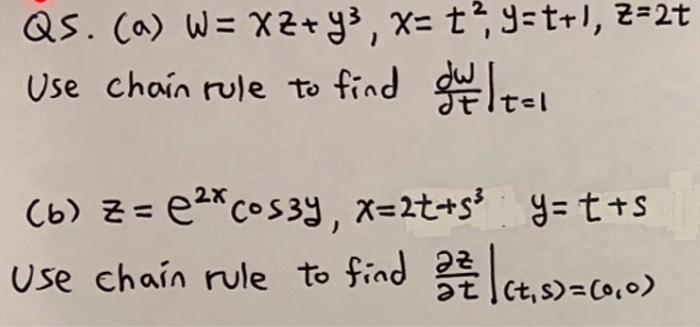 Q5. (a) W = xz + y³, x = t², y = t+1, z = 2t
Use chain rule to find dw/dt |t=1
(b) z = e²ˣ cos3y, x = 2t+s³ y = t+s
Use chain rule to find ∂z/∂t |(t,s)=(0,0)